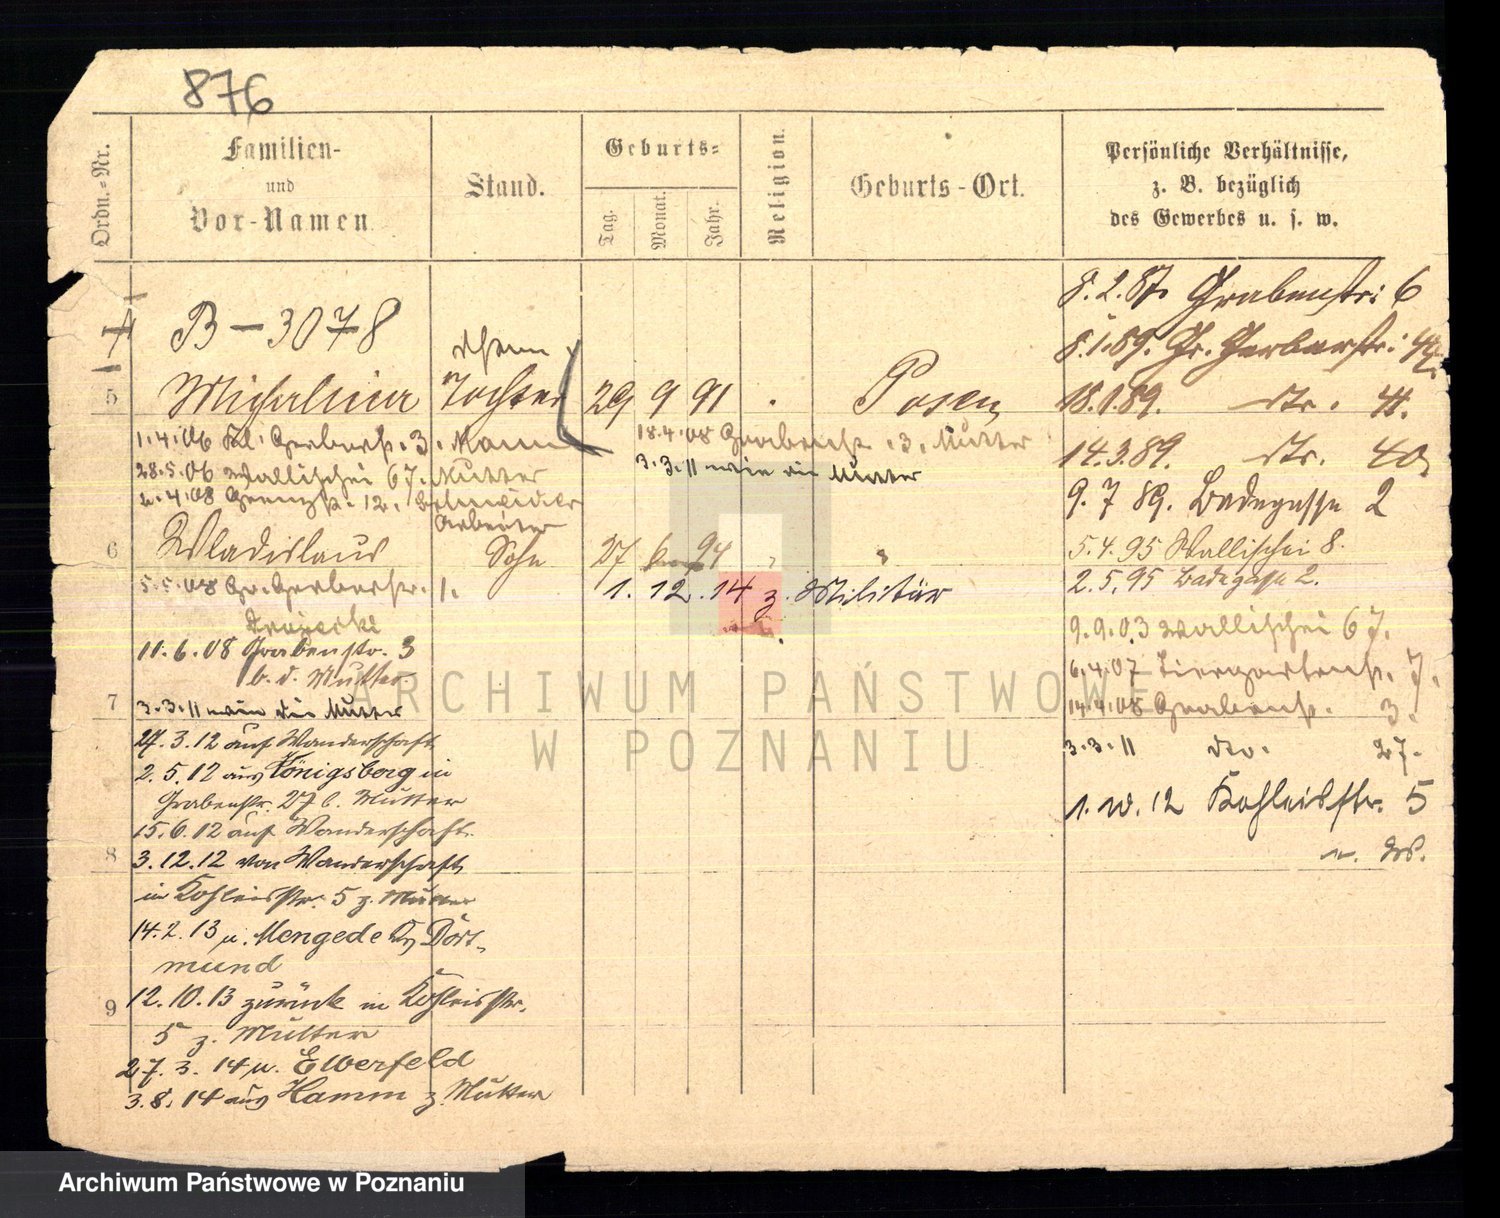 876
Ordn.-Nr.
Familien-
und
Vor-Namen.
Stand.
Geburts-
Tag.
Monat.
Jahr.
Religion.
Geburts-Ort.
Persönliche Verhältnisse,
z. B. bezüglich
des Gewerbes u. s. w.
B-3078
5 Michalina Tochter 29 9 91 Posen
1.4.06 Kl. Gerberstr. 3.
18.4.08 Grabenstr. 3. Mutter
28.5.06 Wallischei 67. Mutter
3.3.11 wie die Mutter
4.08 12.
Arbeiter
6 Wladislaus Sohn 27 94
5.5.08 Gr. Gerberstr. 1.
1. 12. 14 z. Militär
11.6.08 Grabenstr. 3
b. d. Mutter
7
3.3.11 wie die Mutter
27.3.12 auf Wanderschaft
2.5.12 aus Königsberg in
Grabenstr. 27 b. Mutter
15.6.12 auf Wanderschaft
8
3.12.12 von Wanderschaft
in Kohleisstr. 5 z. Mutter
14.2.13 n. Mengede Kr. Dort-
mund
9
12.10.13 zurück in Kohleisstr.
5 z. Mutter
27.3.14 n. Elberfeld
3.8.14 aus Hamm z. Mutter
8.2.87. Grabenstr: 6
8.1.89. Gr. Gerberstr: 42
18.1.89. dto. 41.
14.3.89. dto. 40.
9.7 89. Badegasse 2
5.4.95 Wallischei 8.
2.5.95 Badegasse 2.
9.9.03 Wallischei 67.
6.4.07 Tiergartenstr. 7.
14.4.08 Grabenstr. 3.
3.3.11 dto. 27.
1.10.12 Kohleisstr. 5
ARCHIWUM PAŃSTWOWE
W POZNANIU
Archiwum Państwowe w Poznaniu